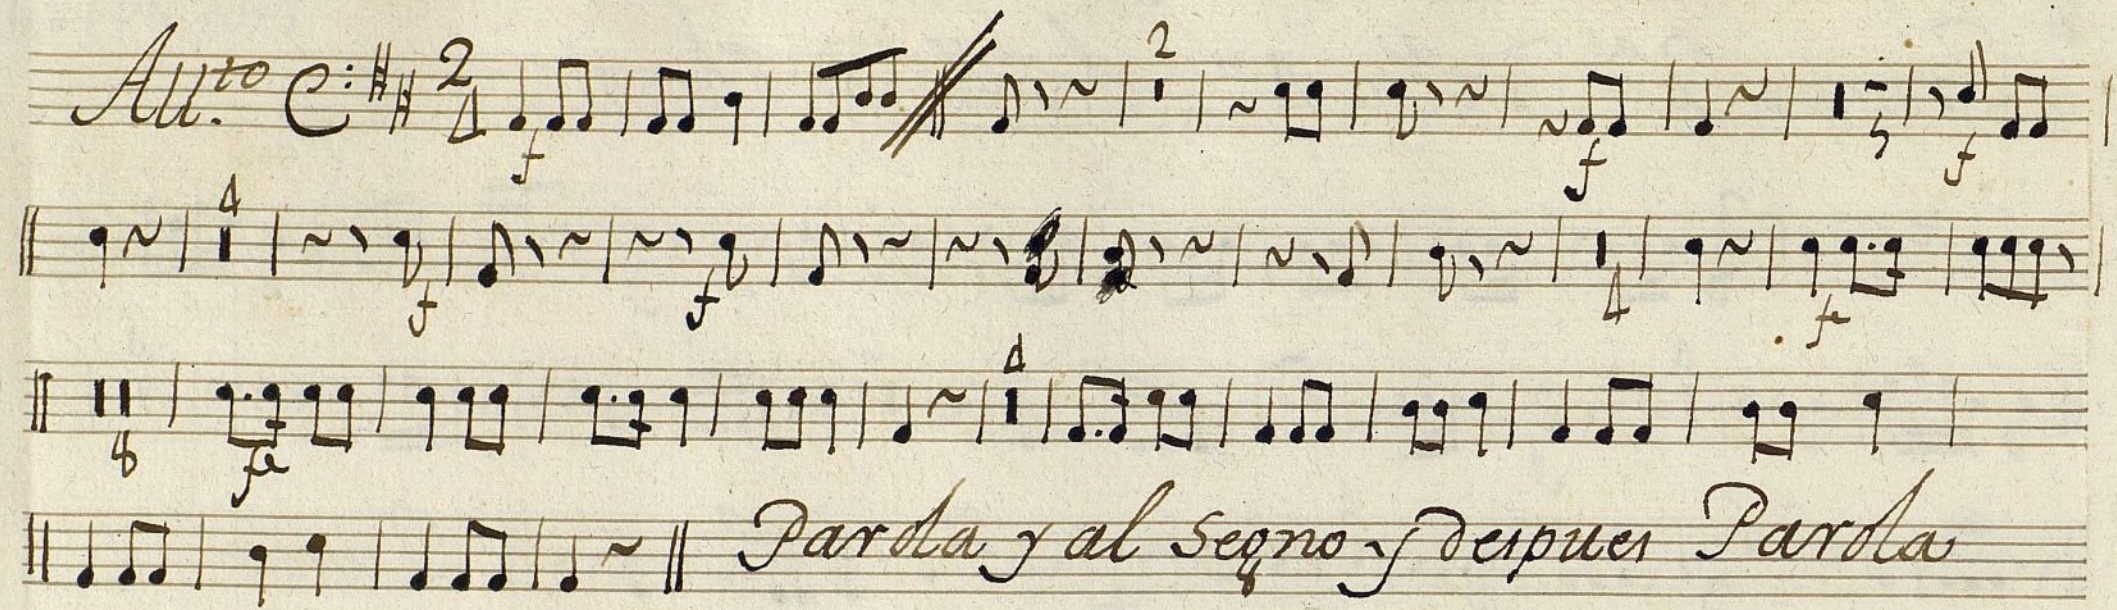 All.to 2 4 2
f f 5 f
4
f f 4 fe
4
8 fe
Parola y al Segno y despues Parola